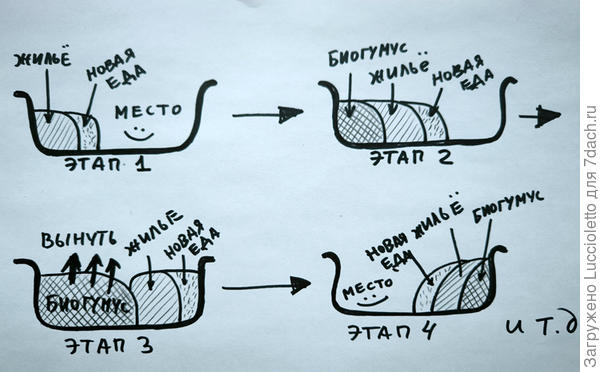 ЖИЛЬЁ
НОВАЯ
ЕДА
МЕСТО
ЭТАП 1
БИОГУМУС
ЖИЛЬЁ
НОВАЯ
ЕДА
ЭТАП 2
ВЫНУТЬ
ЖИЛЬЕ
НОВАЯ
ЕДА
БИОГУМУС
ЭТАП 3
МЕСТО
НОВАЯ
ЕДА
ЖИЛЬЁ
БИОГУМУС
ЭТАП 4
и т.д
Загружено Luccioletto для 7dach.ru